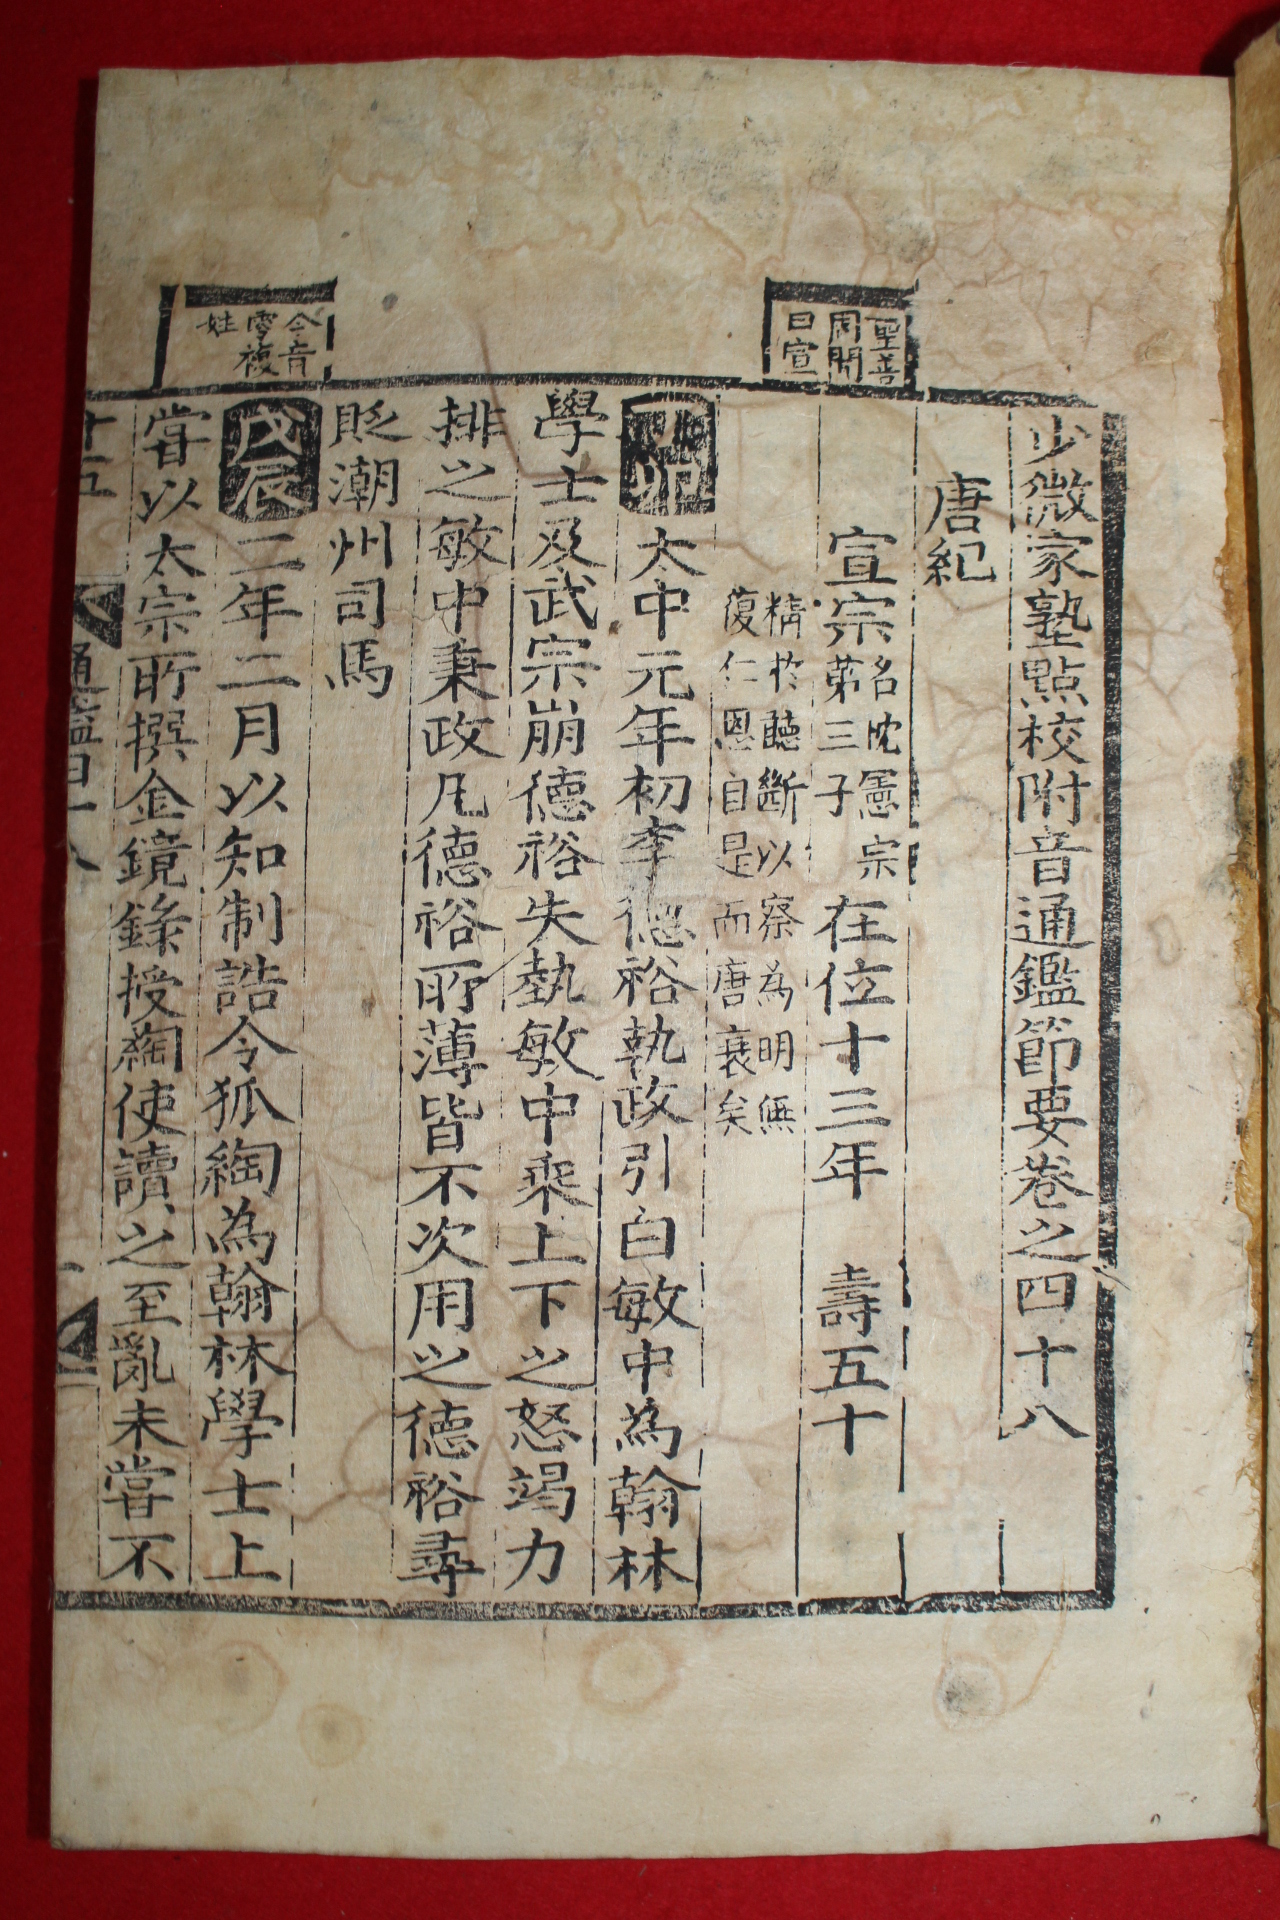 少微家塾點校附音通鑑節要卷之四十八
唐紀
聖善
周聞
曰宣
宣宗
名忱憲宗
第三子
在位十三年 壽五十
精於聽斷以察為明無
復仁恩自是而唐衰矣
丁卯太中元年初李德裕執政引白敏中為翰林
學士及武宗崩德裕失勢敏中乘上下之怒竭力
排之敏中秉政凡德裕所薄皆不次用之德裕尋
貶潮州司馬
令音
零複
姓
戊辰二年二月以知制誥令狐綯為翰林學士上
嘗以太宗所撰金鏡錄授綯使讀之至亂未嘗不
十五
通鑑四十八
一